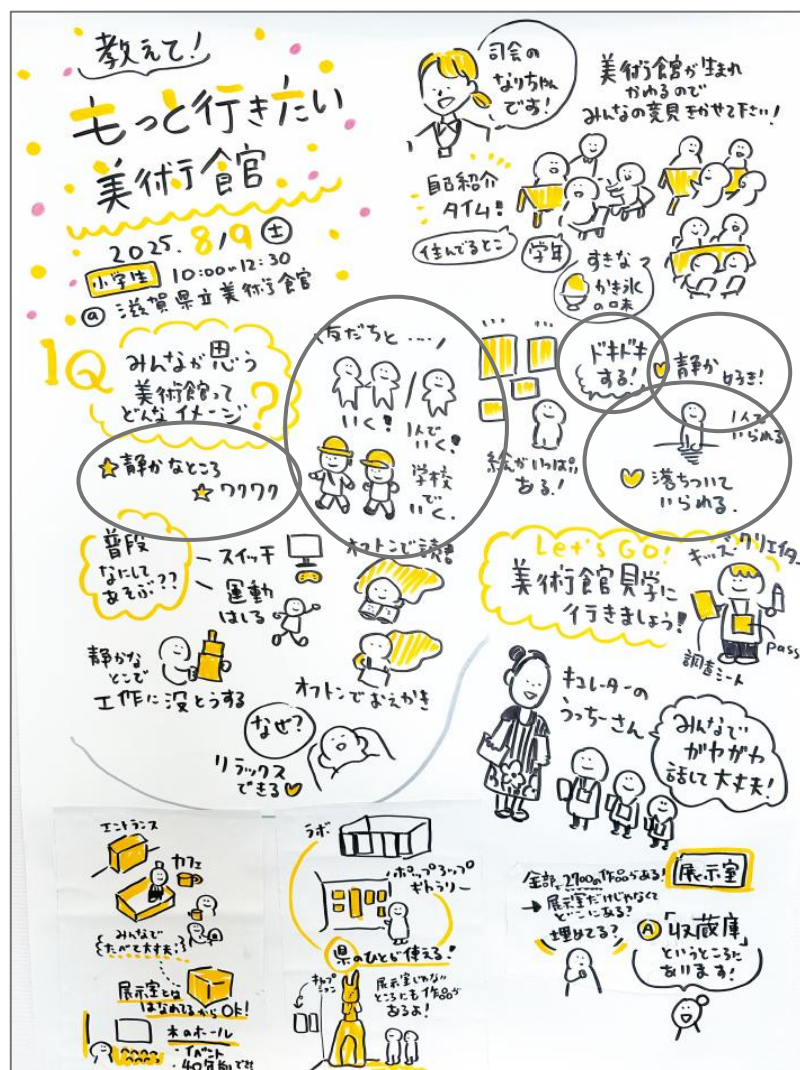 教えて!
もっと行きたい
美術館
2025. 8/9 土
小学生 10:00~12:30
@ 滋賀県立美術館
司会の
なりちゃん
です!
美術館が生まれ
かわるので
みんなの意見をきかせて下さい!
自己紹介
タイム!
住んでるとこ
学年
すきな
かき氷
の味
1Q
みんなが思う
美術館って
どんなイメージ?
静かなところ
ワクワク
友だちと....
いく!
1人で
いく!
学校
で
いく.
絵がいっぱい
ある!
ドキドキ
する!
静か
好き!
1人で
いられる
落ちついて
いられる.
普段
なにして
あそぶ??
スイッチ
運動
はしる
オフトンで読書
静かな
とこで
工作に没とうする
オフトンでおえかき
なぜ?
リラックス
できる
Let's GO!
美術館見学に
行きましょう!
キッズ・クリエイター
pass
調査シート
キュレーターの
うっちーさん
みんなで
ガヤガヤ
話して大丈夫!
エントランス
カフェ
みんなで
たべて大丈夫
展示室とは
はなれてるからOK!
木のホール
・イベント
ラボ
ポップアップ
ギャラリー
県のひとが使える!
キャプ
ション
展示室じゃない
ところにも作品が
あるよ!
展示室
全部で2700の作品がある!
→展示室だけじゃなくて
どこにある?
埋めてる?
A 「収蔵庫」
というところに
あります!